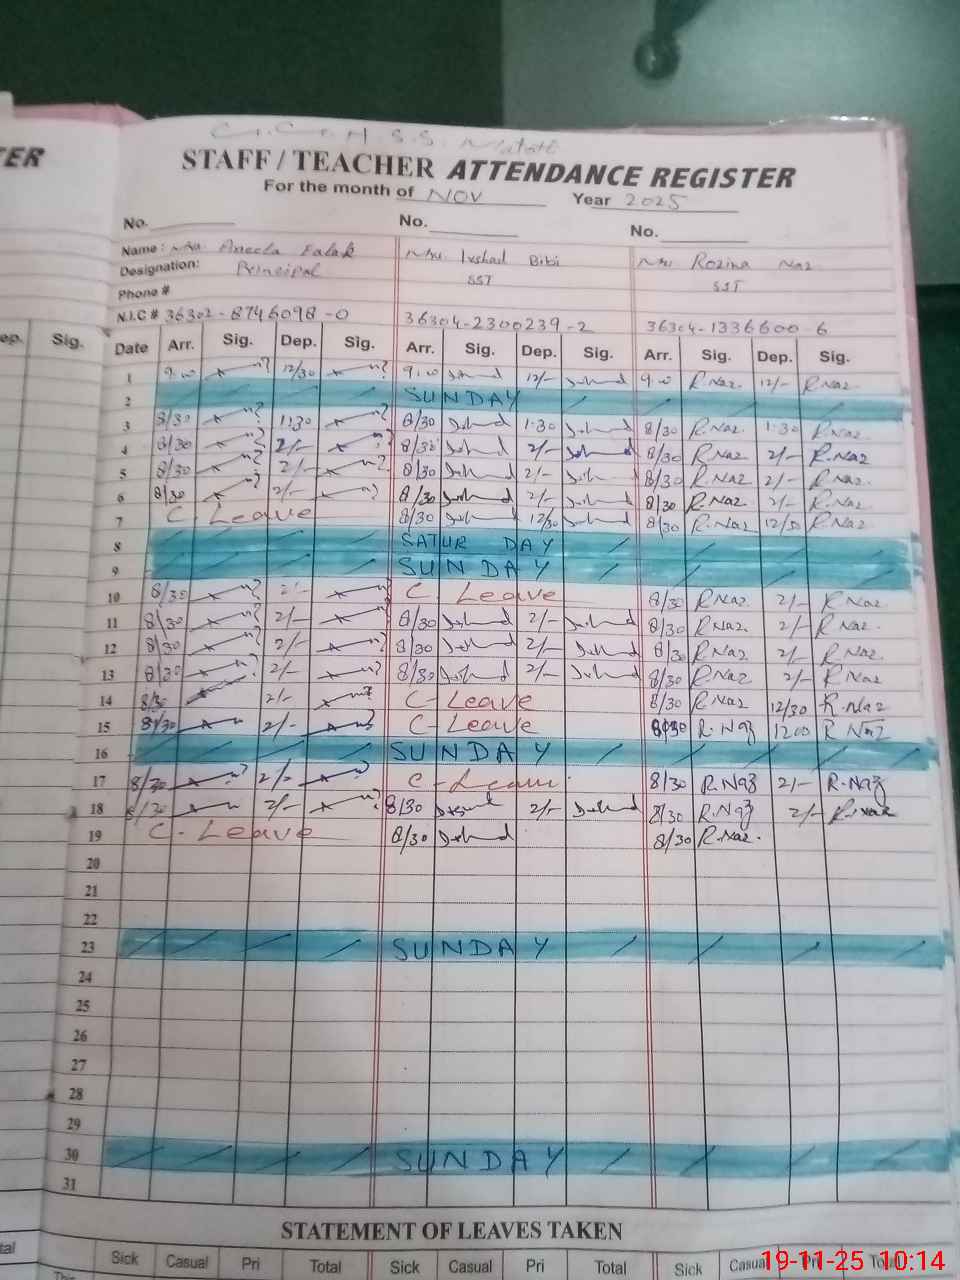 TER
G.G.H.S.S.
STAFF / TEACHER ATTENDANCE REGISTER
For the month of NOV Year 2025
No. No. No.
Name : Mrs. Aneela Falak Mrs. Irshad Bibi Mrs. Rozina Naz
Designation: Principal SST SST
Phone #
N.I.C # 36302-8746098-0 36304-2300239-2 36304-1336600-6
ep. Sig. Date Arr. Sig. Dep. Sig. Arr. Sig. Dep. Sig. Arr. Sig. Dep. Sig.
1 9.00 12/30 9.00 12/- 9.00 R.Naz 12/- R.Naz
2 SUNDAY
3 8/30 1:30 8/30 1:30 8/30 R.Naz 1:30 R.Naz
4 8/30 2/- 8/30 2/- 8/30 R.Naz 2/- R.Naz
5 8/30 2/- 8/30 2/- 8/30 R.Naz 2/- R.Naz
6 8/30 2/- 8/30 2/- 8/30 R.Naz 2/- R.Naz
7 C Leave 8/30 12/30 8/30 R.Naz 12/30 R.Naz
8 SATURDAY
9 SUNDAY
10 8/30 2/- C- Leave 8/30 R.Naz 2/- R.Naz
11 8/30 2/- 8/30 2/- 8/30 R.Naz 2/- R.Naz
12 8/30 2/- 8/30 2/- 8/30 R.Naz 2/- R.Naz
13 8/30 2/- 8/30 2/- 8/30 R.Naz 2/- R.Naz
14 8/30 2/- C- Leave 8/30 R.Naz 12/30 R.Naz
15 8/30 2/- C- Leave 8/30 R.Naz 1200 R Naz
16 SUNDAY
17 8/30 2/- C- Leave 8/30 R.Naz 2/- R.Naz
18 8/30 2/- 8/30 2/- 8/30 R.Naz 2/- R.Naz
19 C- Leave 8/30 8/30 R.Naz
20
21
22
23 SUNDAY
24
25
26
27
28
29
30 SUNDAY
31
STATEMENT OF LEAVES TAKEN
tal Sick Casual Pri Total Sick Casual Pri Total Sick Casual Pri Total
This
19-11-25 10:14